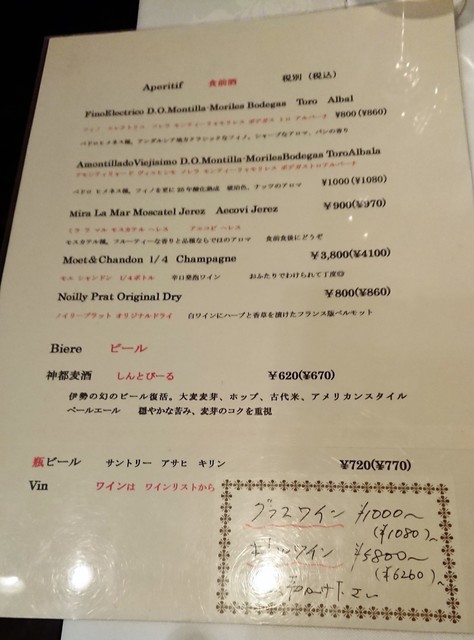 Aperitif 食前酒 税別（税込）
FinoElectrico D.O.Montilla-Moriles Bodegas Toro Albal
¥800(¥860)
ペドロヒメネス種。アンダルシア地方クラシックなフィノ。シャープなアロマ、パンの香り
AmontilladoViejisimo D.O.Montilla-MorilesBodegas ToroAlbala
ペドロ ヒメネス種。フィノを更に 酸化熟成 琥珀色、ナッツのアロマ ¥1000(¥1080)
Mira La Mar Moscatel Jerez Aecovi Jerez ¥900(¥970)
ミラ ラ マル モスカテル ヘレス アエコビ ヘレス
モスカテル種。フルーティーな香りと品種ならではのアロマ 食前食後にどうぞ
Moet&Chandon 1/4 Champagne ¥3,800(¥4100)
モエ シャンドン 1/4ボトル 辛口発泡ワイン おふたりでわけられて丁度◎
Noilly Prat Original Dry ¥800(¥860)
ノイリープラット オリジナルドライ 白ワインにハーブと香草を漬けたフランス版ベルモット
Biere ビール
神都麦酒 しんとびーる ¥620(¥670)
伊勢の幻のビール復活。大麦麦芽、ホップ、古代米、アメリカンスタイル
ペールエール 穏やかな苦み、麦芽のコクを重視
瓶ビール サントリー アサヒ キリン ¥720(¥770)
Vin ワインは ワインリストから
グラスワイン ¥1000〜
(¥1080)〜
ボトルワイン ¥5800〜
(¥6260)〜